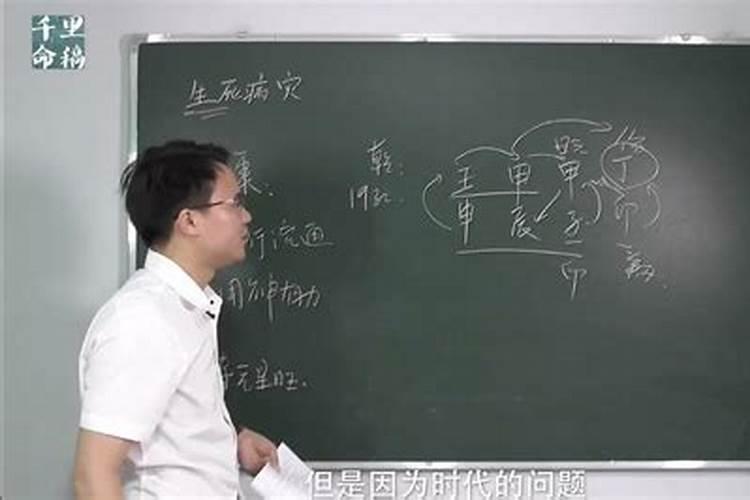 千里
命稿
生死病灾
乾：
1932.
壬 甲 甲 丁
申 辰 子 卯
印
行流通
用神有力
元星旺.
但是因为时代的问题